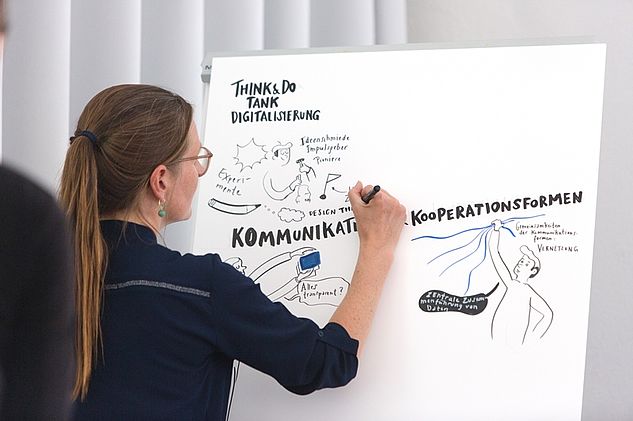 THINK & DO
TANK
DIGITALISIERUNG
Ideenschmiede
Impulsgeber
Pioniere
Experi-
mente
DESIGN TH
KOMMUNIKAT
Alles
transparent?
KOOPERATIONSFORMEN
Gemeinsamkeiten
der Kommunikations-
formen:
VERNETZUNG
Zentrale Zusam-
menführung von
Daten